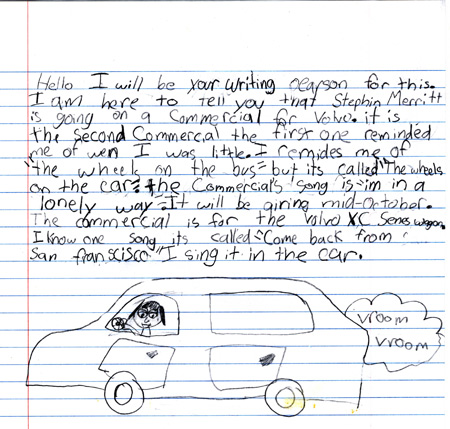 Hello I will be your writing pearson for this.
I am here to tell you that Stephin Merritt
is going on a Commercial for Volvo. it is
the second Commercial the first one reminded
me of wen I was little. I remides me of
"the wheels on the bus" but its called "The wheels
on the car" the Commercial's song is "im in a
lonely way" It will be airing mid-October.
The commercial is for the Volvo XC Series wagon.
I know one song its called "Come back from
San franscisco" I sing it in the car.
vroom
vroom